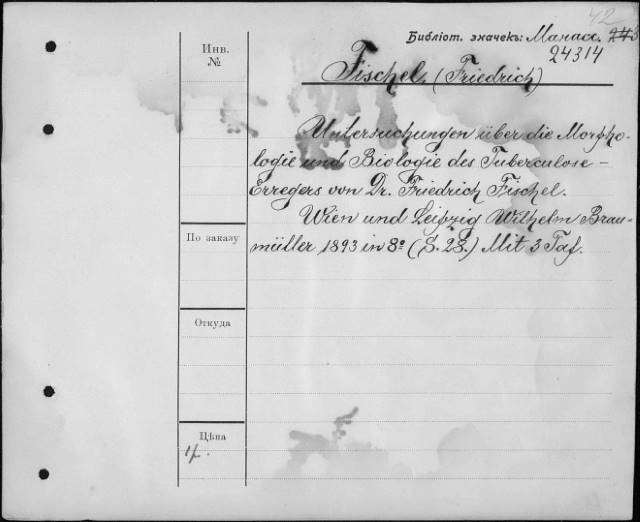 42
Библіот. значекъ: Манасс.
24314
Инв.
№
Fischel, (Friedrich)
Untersuchungen über die Morpho-
logie und Biologie des Tuberculose-
Erregers von Dr. Friedrich Fischel.
Wien und Leipzig Wilhelm Brau-
müller 1893 in 8º (S. 28.) Mit 3 Taf.
По заказу
Откуда
Цѣна